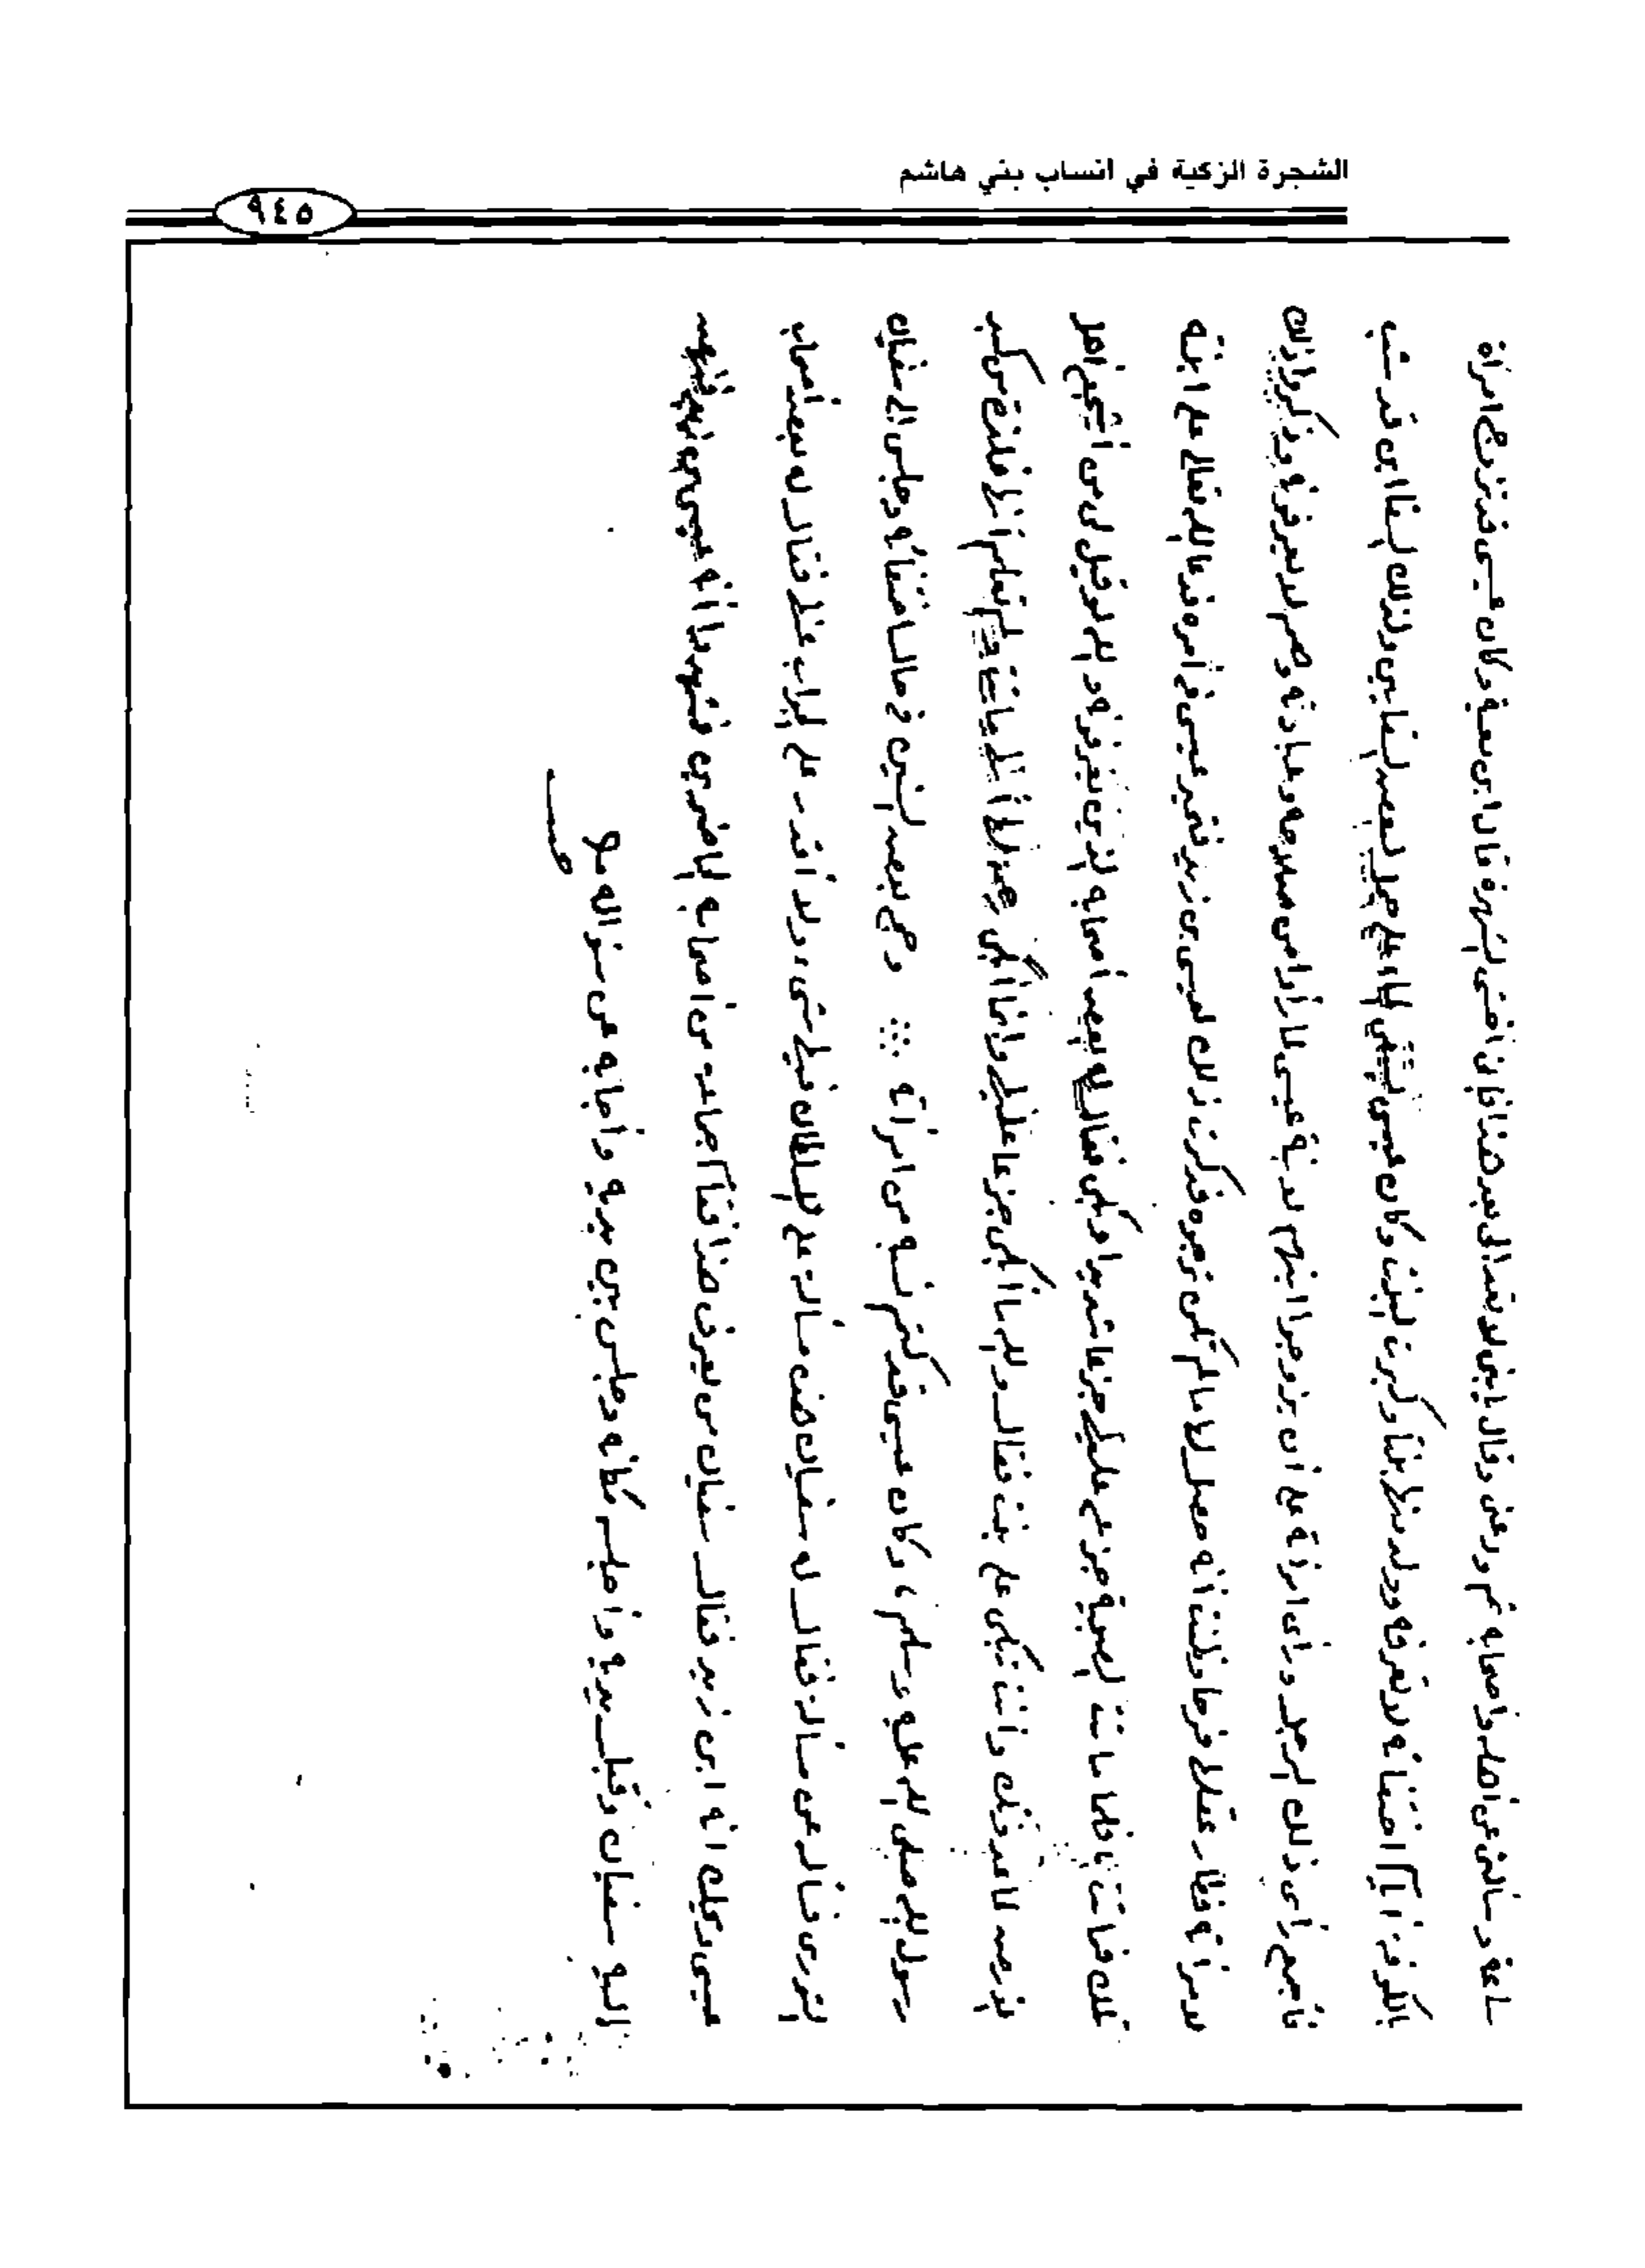 الشجرة الزكية في انساب بني هاشم
٩٤٥
ساعة وسألني عن أهله وأصحابه ثم ودعني وقال يا بني لا تعد الي بعد هذا فاني اخشى الشهرة قال ابن معية وكان عيسى قد تزوج امرأة
بالكوفة أيام اختفائه لا تعرفه وولد منها بنتا وكبرت البنت وكان عيسى يستقي الماء على جمل لبعض السقايين ولذلك السقا ابن قد شب
فأجمع رأى ذلك الرجل ورأى امرأته على أن يزوجوا ابنهم لابنة عيسى لما رأوا من صلاحه وعبادته وهم لا يعرفونه وذكروا ذلك
لامرأته فطار عقلها فرحا وظنت أنه حصل لها ما لم تكن ترجوه فذكرت ذلك لعيسى بن زيد فتحير عيسى في أمره ودعا الله تعالى على ابنته
تلك فماتت فلما ماتت الصبية جزع عليها جزعا شديدا وبكى فقال له بعض أصحابه الذين يعرفونه والله لو قيل لي من أشجع اهل
الارض لما عدوتك وأنت تبكي على بنت فقال والله ما أبكي جزعا عليها وانما أبكي رحمة لها انها ماتت ولم تعلم انها فلذة من كبد
رسول الله صلى الله عليه وسلم، وكان عيسى قد كتم نسبه من امرأته وحج بعض السنين في حال اختفائه وجلس الى سفيان
الثوري فسأله عن مسألة فقال له سفيان هذه مسألة على السلطان فيها شيء ولا أقدر على الجواب عنها فقال له بعض أصحاب
عيسى ويلك انه ابن زيد فقال سفيان من يعرف هذا فقام جماعة من اصحابه الحاضرين فشهدوا أنه عيسى بن زيد فنهض
اليه سفيان وقبل يديه وأجلسه مكانه وجلس بين يديه وأجابه عن سؤاله